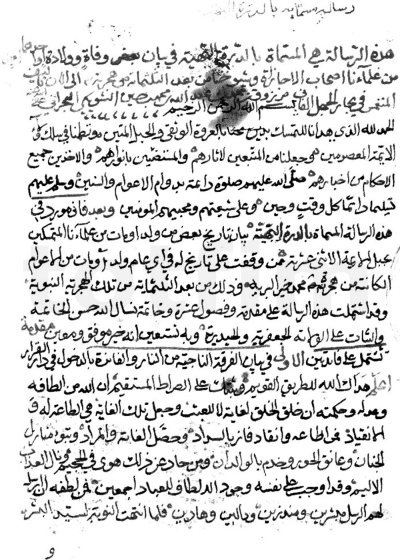 رسالة مسماة بالدرة البهية
هذه الرسالة هي المسماة بالدرة البهية في بيان بعض وفاة وولادة
من علمائنا اصحاب الاجازة وشيوخنا من بعد الثلثمائة من هجرية الى الان
المنغمر في بحار الجهل الق بسم الله الرحمن الرحيم
الحمد لله الذي هدانا للتمسك بدين محمد بالعروة الوثقى والحبل المتين بو في سلك
الائمة المعصومين جعلنا من المتبعين لاثارهم والمستضيئين بانوارهم والاخذين جميع
الاحكام من اخبارهم صلى الله عليهم صلوة دائمة بدوام الاعوام والسنين وسلم عليهم
تسليما دائما كل وقت وحين وعلى شيعتهم ومحبيهم المؤمنين وبعد فاني مورد في
هذه الرسالة المسماة بالدرة البهية بيان تاريخ بعض من ولد او مات من علمائنا المتمسكين
بحبل الائمة الاثني عشرية ممن وقفت على تاريخه في اي عام ولد او مات من الاعوام
الكائنة من هجرة محمد خير البرية وذلك من بعد الثلثمائة من تلك الهجرية النبوية
وقد اشتملت هذه الرسالة على مقدمة وفصول عشرة وخاتمة نسال الله حسن الخاتمة
والثبات على الجعفرية والحيدرية وبه نستعين انه خير موفق ومعين مقدمة
تشتمل على فائدتين الاولى في بيان الفرقة الناجية من النار والفائزة بالدخول في دار القرار
اعلم هداك الله للطريق القويم وثبتك على الصراط المستقيم ان الله من الطافه
وحكمته ان خلق الخلق لغاية لا للعبث وجعل تلك الغاية هي الطاعة له
الانقياد فمن اطاعه وانقاد فاز بالسداد وحصل الغاية والمراد وتبوء منازل
الجنان وعانق الحور وخدم بالولدان ومن حاد عن ذلك هوى في الجحيم العذاب
الاليم وقد اوجب على نفسه وجود الالطاف للعباد اجمعين فمن لطفه ان
لهم الرسل مبشرين ومنذرين ودالين وهادين فلما انتهت النوبة لسيد البشر
و